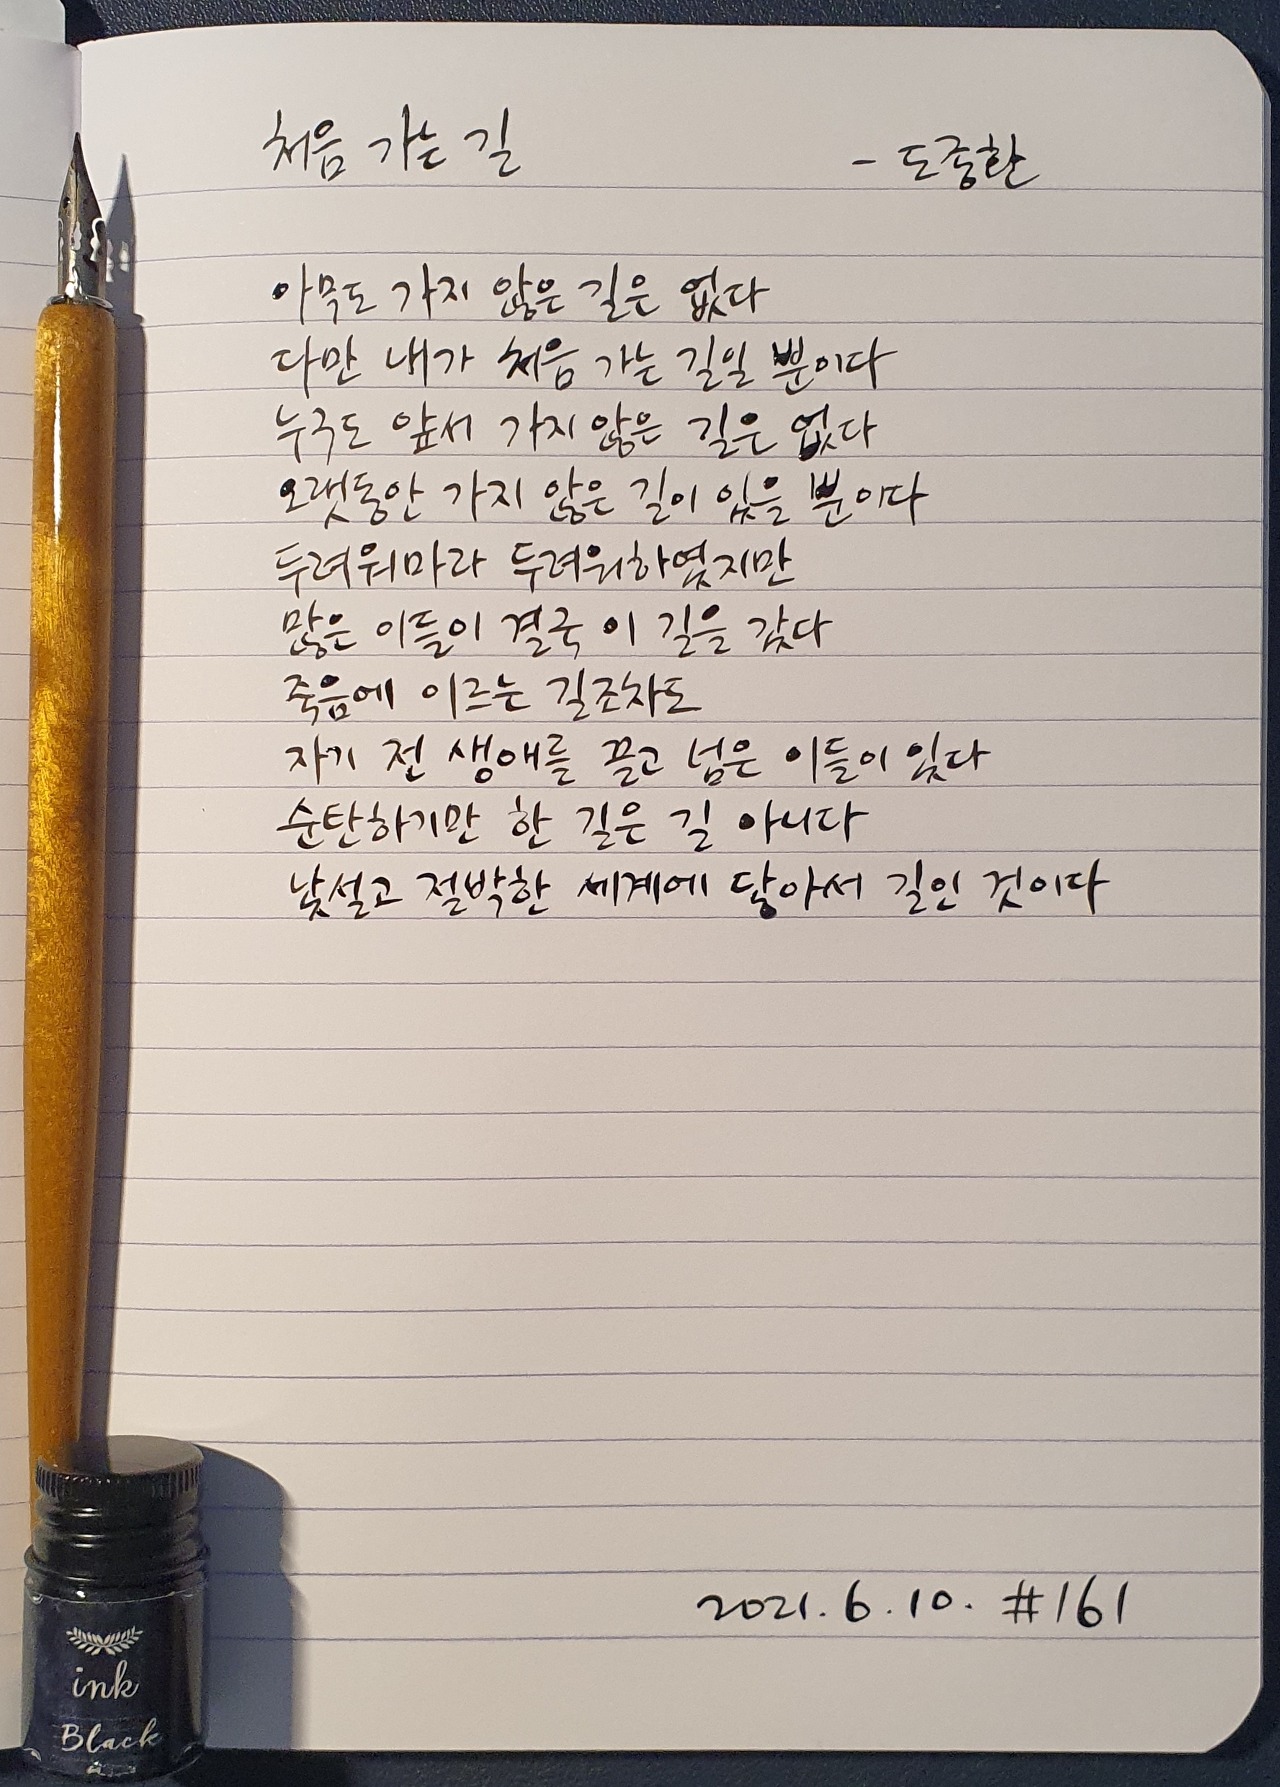 처음 가는 길 - 도종환
아무도 가지 않은 길은 없다
다만 내가 처음 가는 길일 뿐이다
누구도 앞서 가지 않은 길은 없다
오랫동안 가지 않은 길이 있을 뿐이다
두려워마라 두려워하였지만
많은 이들이 결국 이 길을 갔다
죽음에 이르는 길조차도
자기 전 생애를 끌고 넘은 이들이 있다
순탄하기만 한 길은 길 아니다
낯설고 절박한 세계에 닿아서 길인 것이다
2021. 6. 10. #161
ink
Black